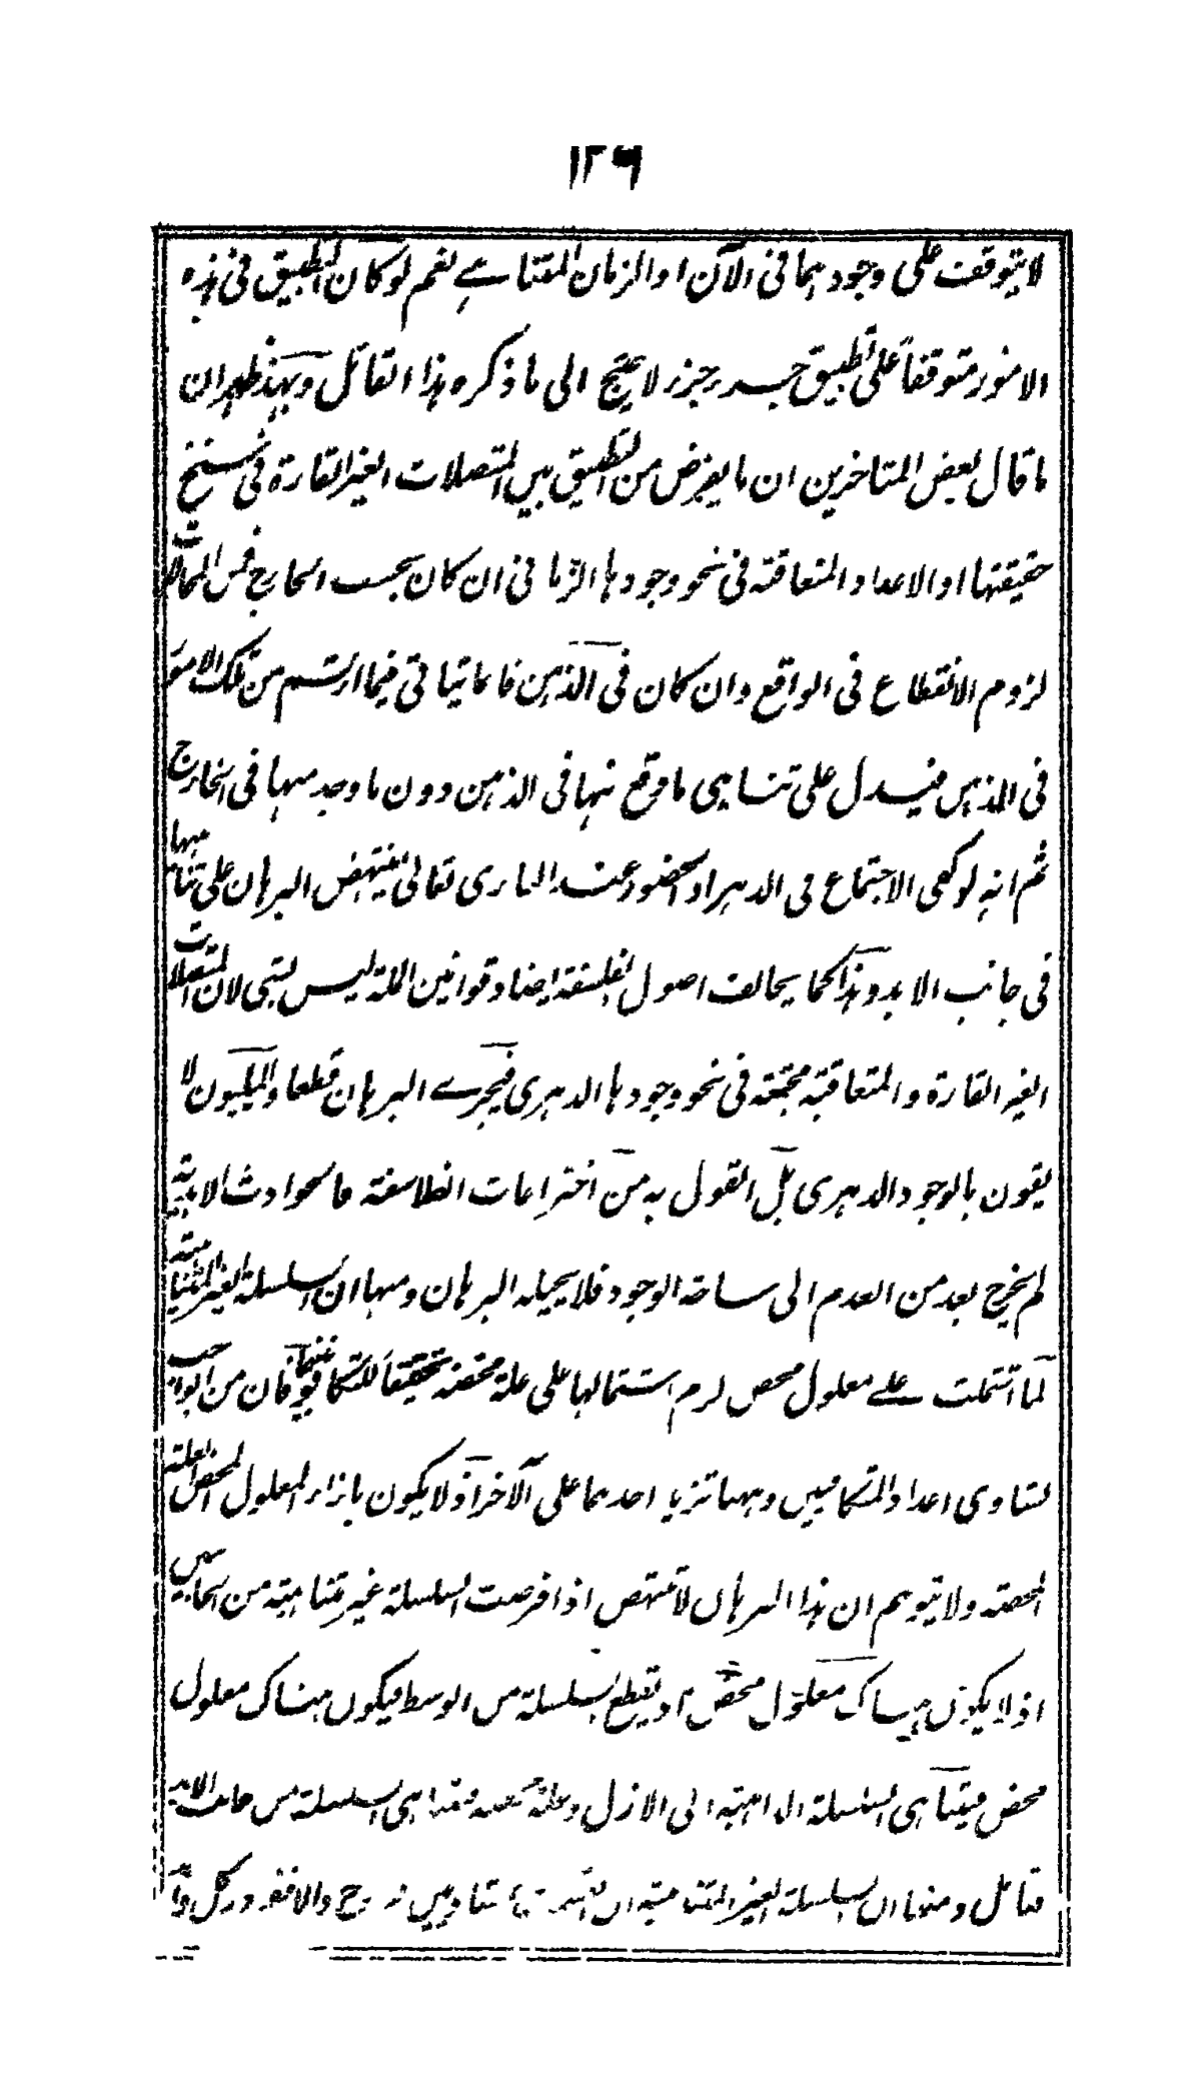 ١٢٦
لا يتوقف على وجودهما فى الآن او الزمان المتناهي نعم لو كان التطبيق فى هذه
الامور متوقفاً على تطبيق جزر جزر لا يحتج الى ما ذكره هذا القائل وبهذا ظهر ان
ما قال بعض المتاخرين ان ما يفرض من التطبيق بين المتصلات الغير القارة فى سنخ
حقيقتها او الاعداد المتعاقبة فى نحو وجودها الزمانى ان كان بحسب الخارج فمن المحالات
لزوم الانقطاع فى الواقع وان كان فى الذهن فانما تياتى فيما ارتسم من تلك الامور
فى الذهن فيدل على تناهى ما وقع منها فى الذهن دون ما وجد منها فى الخارج
ثم انه لو كفى الاجتماع فى الدهر او الحضور عند البارى تعالى فينتهض البرهان على تناهيها
فى جانب الابد وهذا كما يخالف اصول الفلسفة ايضا وقوانين الملة ليس بشئ لان المتصلات
الغير القارة والمتعاقبة مجتمعة فى نحو وجودها الدهرى فيجرے البرهان قطعا والمليون لا
يقون بالوجود الدهرى بل القول به من اختراعات الفلاسفة فالحوادث الابدية
لم يخرج بعد من العدم الى ساحة الوجود فلا يحيله البرهان ومنها ان السلسلة الغير المتناهية
لما اشتملت علے معلول محض لزم اشتمالها على علة محضة تحقيقاً للتكافؤ فان من ابواب
تساوى اعداد المتكافيين وههنا تزيد احدهما على الآخر اذ لا يكون بازاء المعلول المحض العلة
المحضة ولا يتوهم ان هذا البرهان لا تنتهض اذا فرضت السلسلة غير متناهية من الجانبين
اذ لا يكون هناك معلول محض اذ يقطع السلسلة من الوسط فيكون هناك معلول
محض فيتناهى السلسلة الذاهبة الى الازل وعلة محضة فيتناهى السلسلة من جانب الابد
فتامل ومنها ان السلسلة الغير المتناهية ان والا فنفر